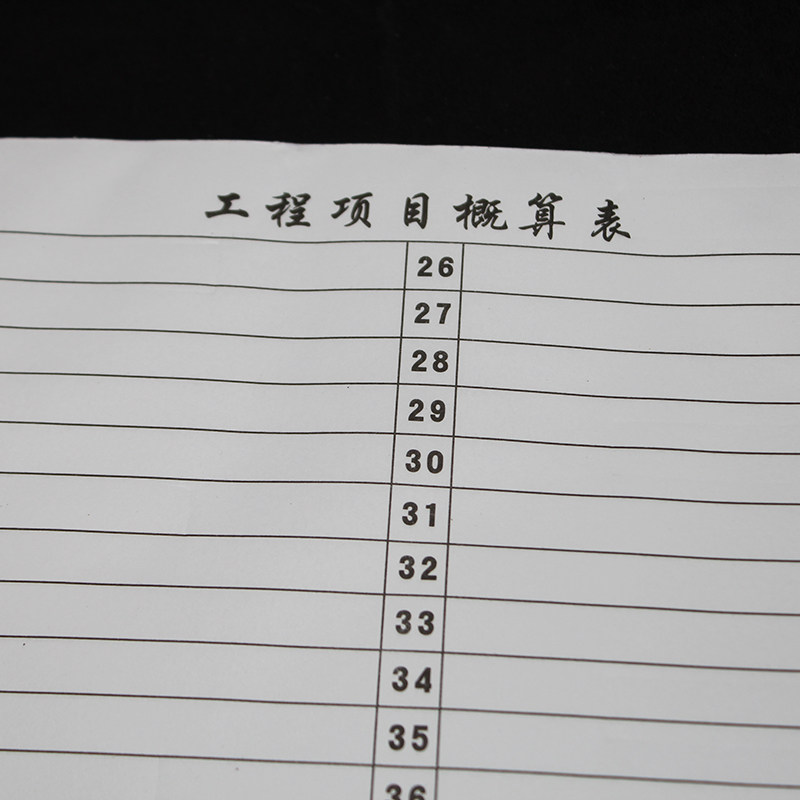 工程项目概算表
26
27
28
29
30
31
32
33
34
35
36